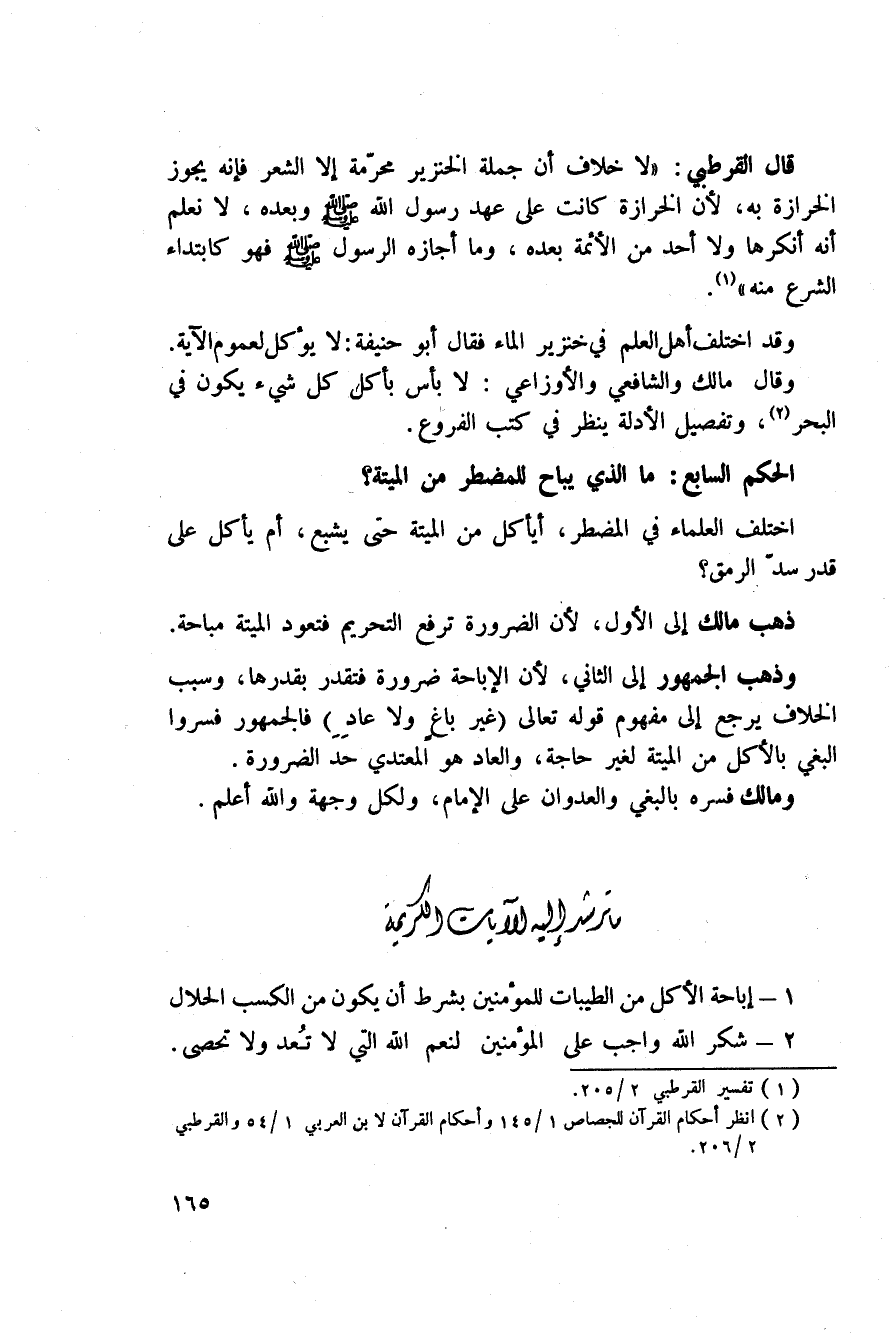 قال القرطبي: «لا خلاف أن جملة الخنزير محرّمة إلا الشعر فإنه يجوز
الخرازة به، لأن الخرازة كانت على عهد رسول الله ﷺ وبعده، لا نعلم
أنه أنكرها ولا أحد من الأئمة بعده، وما أجازه الرسول ﷺ فهو كابتداء
الشرع منه»(١).
وقد اختلف أهل العلم في خنزير الماء فقال أبو حنيفة: لا يؤكل لعموم الآية.
وقال مالك والشافعي والأوزاعي : لا بأس بأكل كل شيء يكون في
البحر(٢)، وتفصيل الأدلة ينظر في كتب الفروع.
الحكم السابع: ما الذي يباح للمضطر من الميتة؟
اختلف العلماء في المضطر، أيأكل من الميتة حتى يشبع، أم يأكل على
قدر سدّ الرمق؟
ذهب مالك إلى الأول، لأن الضرورة ترفع التحريم فتعود الميتة مباحة.
وذهب الجمهور إلى الثاني، لأن الإباحة ضرورة فتقدر بقدرها، وسبب
الخلاف يرجع إلى مفهوم قوله تعالى (غير باغٍ ولا عادٍ) فالجمهور فسروا
البغي بالأكل من الميتة لغير حاجة، والعاد هو المعتدي حدّ الضرورة.
ومالك فسره بالبغي والعدوان على الإمام، ولكل وجهة والله أعلم.
ما ترشد إليه الآيات الكريمة
١ – إباحة الأكل من الطيبات للمؤمنين بشرط أن يكون من الكسب الحلال
٢ – شكر الله واجب على المؤمنين لنعم الله التي لا تُعد ولا تحصى.
(١) تفسير القرطبي ٢/٢٠٥.
(٢) انظر أحكام القرآن للجصاص ١/١٤٥ وأحكام القرآن لابن العربي ١/٥٤ والقرطبي
٢/٢٠٦.
١٦٥